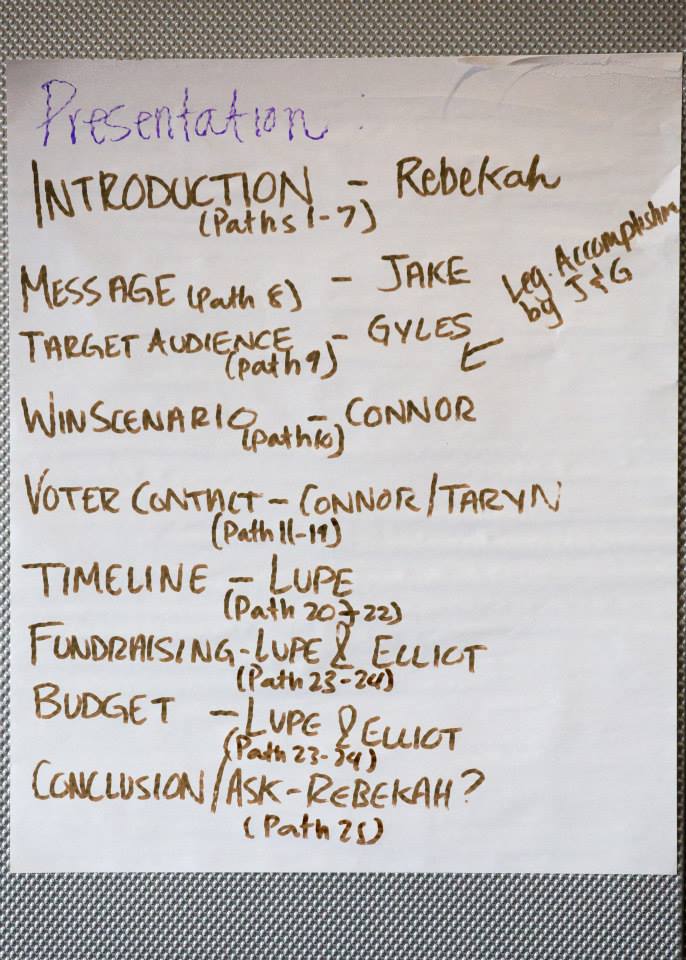 Presentation :
INTRODUCTION - Rebekah
(Paths 1-7)
MESSAGE (Path 8) - JAKE
Leg. Accomplishm
by J & G
TARGET AUDIENCE - GYLES
(path 9)
WIN SCENARIO - CONNOR
(path 10)
VOTER CONTACT - CONNOR/TARYN
(Path 11-19)
TIMELINE - LUPE
(Path 20-22)
FUNDRAISING - LUPE & ELLIOT
(Path 23-24)
BUDGET - LUPE & ELLIOT
(Path 23-24)
CONCLUSION/ASK - REBEKAH?
(Path 25)